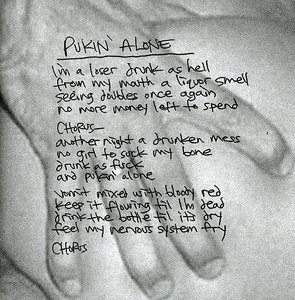 PUKIN' ALONE
I'm a loser drunk as hell
from my mouth a liquor smell
seeing doubles once again
no more money left to spend
CHORUS
another night a drunken mess
no girl to suck my bone
drunk as fuck
and pukin' alone
vomit mixed with bloody red
keep it flowing til I'm dead
drink the bottle til its dry
feel my nervous system fry
CHORUS